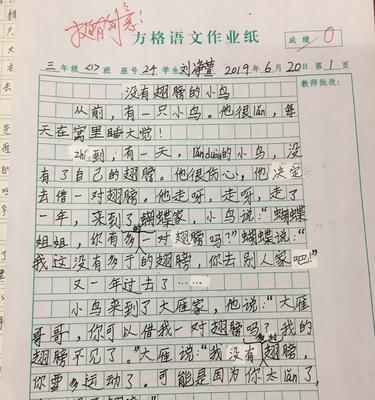 方格语文作业纸
成绩 0
三年级<1>班 座号24 学生刘净萱 2019年6月20日第1页
教师批改:
没有翅膀的小鸟
从前,有一只小鸟。他很lǎn,每
天在窝里睡大觉!
zhí到,有一天,lǎnduò的小鸟,没
有了自己的翅膀。他很伤心,他决定
去借一对翅膀。他走呀,走呀,走了
一年,来到了蝴蝶家,小鸟说:“蝴蝶
姐姐,你有多一对翅膀吗?”蝴蝶说:“
我这没有多于的翅膀,你去别人家吧!”
又一年过去了……
小鸟来到了大雁家,他说:“大雁
哥哥,你可以借我一对翅膀吗?我的
翅膀不见了。”大雁说:“我没有多的翅膀,
你要多运动了。可能是因为你太lǎn了,